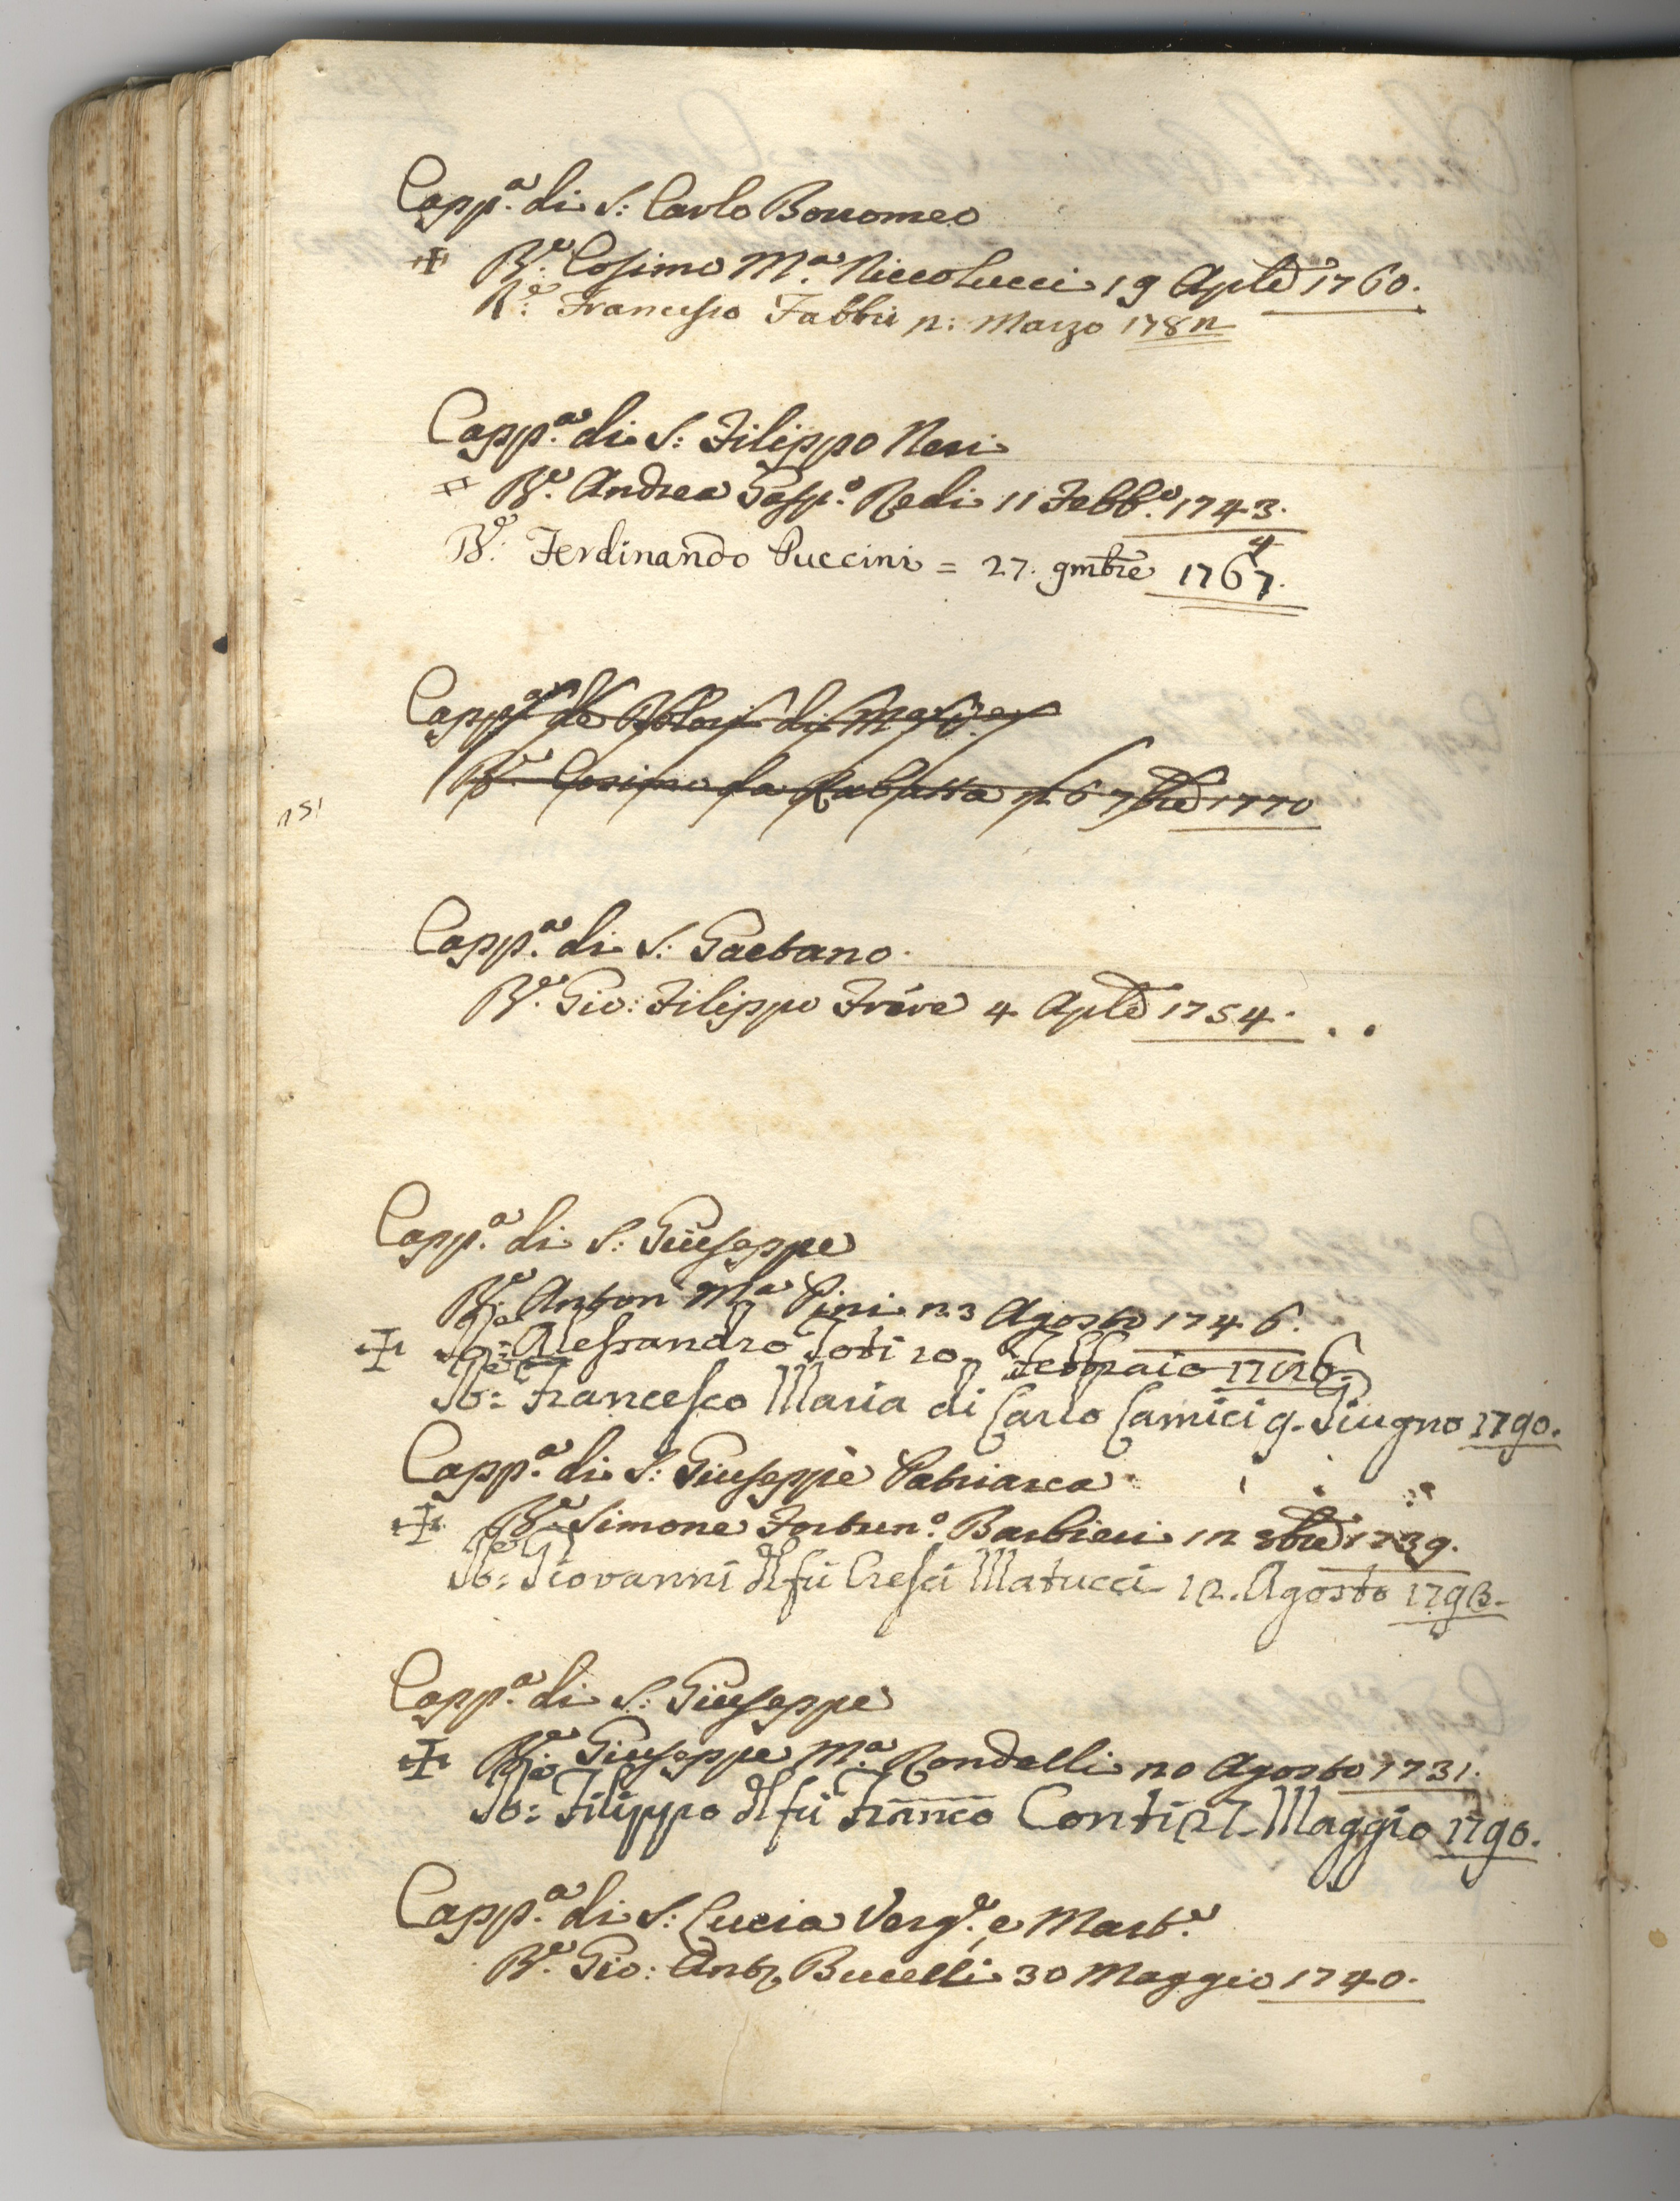 Capp.a di S: Carlo Borromeo
✠ R.e Cosimo M.a Niccolucci 19 Aple 1760.
R.e Francesco Fabbri 2: Marzo 1782
Capp.a di S: Filippo Neri
✠ R.e Andrea Gasp.o Redi 11 Febb.o 1743.
R.e Ferdinando Puccini = 27. 9mbre 1767. 4
Capp.a
R.e Cosimo da Rabatta 26 7bre 1770
151
Capp.a di S: Gaetano.
R.e Gio: Filippo Freve 4 Aple 1754.
Capp.a di S: Giuseppe
R.e Anton M.a Pini 23 Agosto 1746.
✠ Re: Alessandro Soti 20 Febbraio
Re: Francesco Maria di Carlo Camici 9. Giugno 1790.
Capp.a di S: Giuseppe Patriarca
✠ R.e Simone Fortun.o Barbieri 12 8bre 1739.
Re: Giovanni del fu Cresci Matucci 12. Agosto 1793.
Capp.a di S: Giuseppe
✠ R.e Giuseppe M.a Rondelli 20 Agosto 1731.
Re: Filippo del fu Franco Conti 27. Maggio 1790.
Capp.a di S: Lucia Verg.e, e Mart.e
R.e Gio: Ant. Bucelli 30 Maggio 1740.